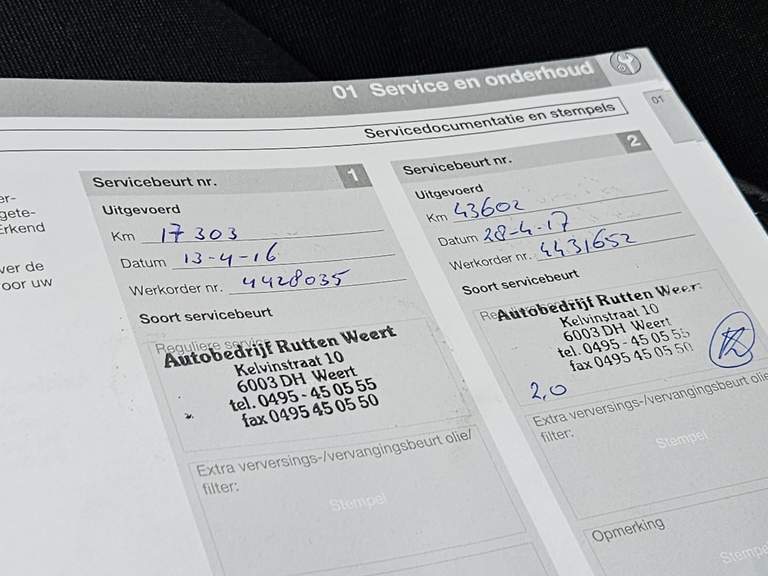 01 Service en onderhoud
01
Servicedocumentatie en stempels
Servicebeurt nr. 1
Uitgevoerd
Km 17303
Datum 13-4-16
Werkorder nr. 4428035
Soort servicebeurt
Reguliere
Autobedrijf Rutten Weert
Kelvinstraat 10
6003 DH Weert
tel. 0495 - 45 05 55
fax 0495 45 05 50
Extra verversings-/vervangingsbeurt olie/
filter:
Stempel
Servicebeurt nr. 2
Uitgevoerd
Km 43602
Datum 28-4-17
Werkorder nr. 4431652
Soort servicebeurt
Autobedrijf Rutten Weer
Kelvinstraat 10
6003 DH Weert
tel. 0495 - 45 05 55
fax 0495 45 05 50
2,0
Extra verversings-/vervangingsbeurt olie
filter:
Stempel
Opmerking
Stempe
er-
gete-
Erkend
ver de
oor uw